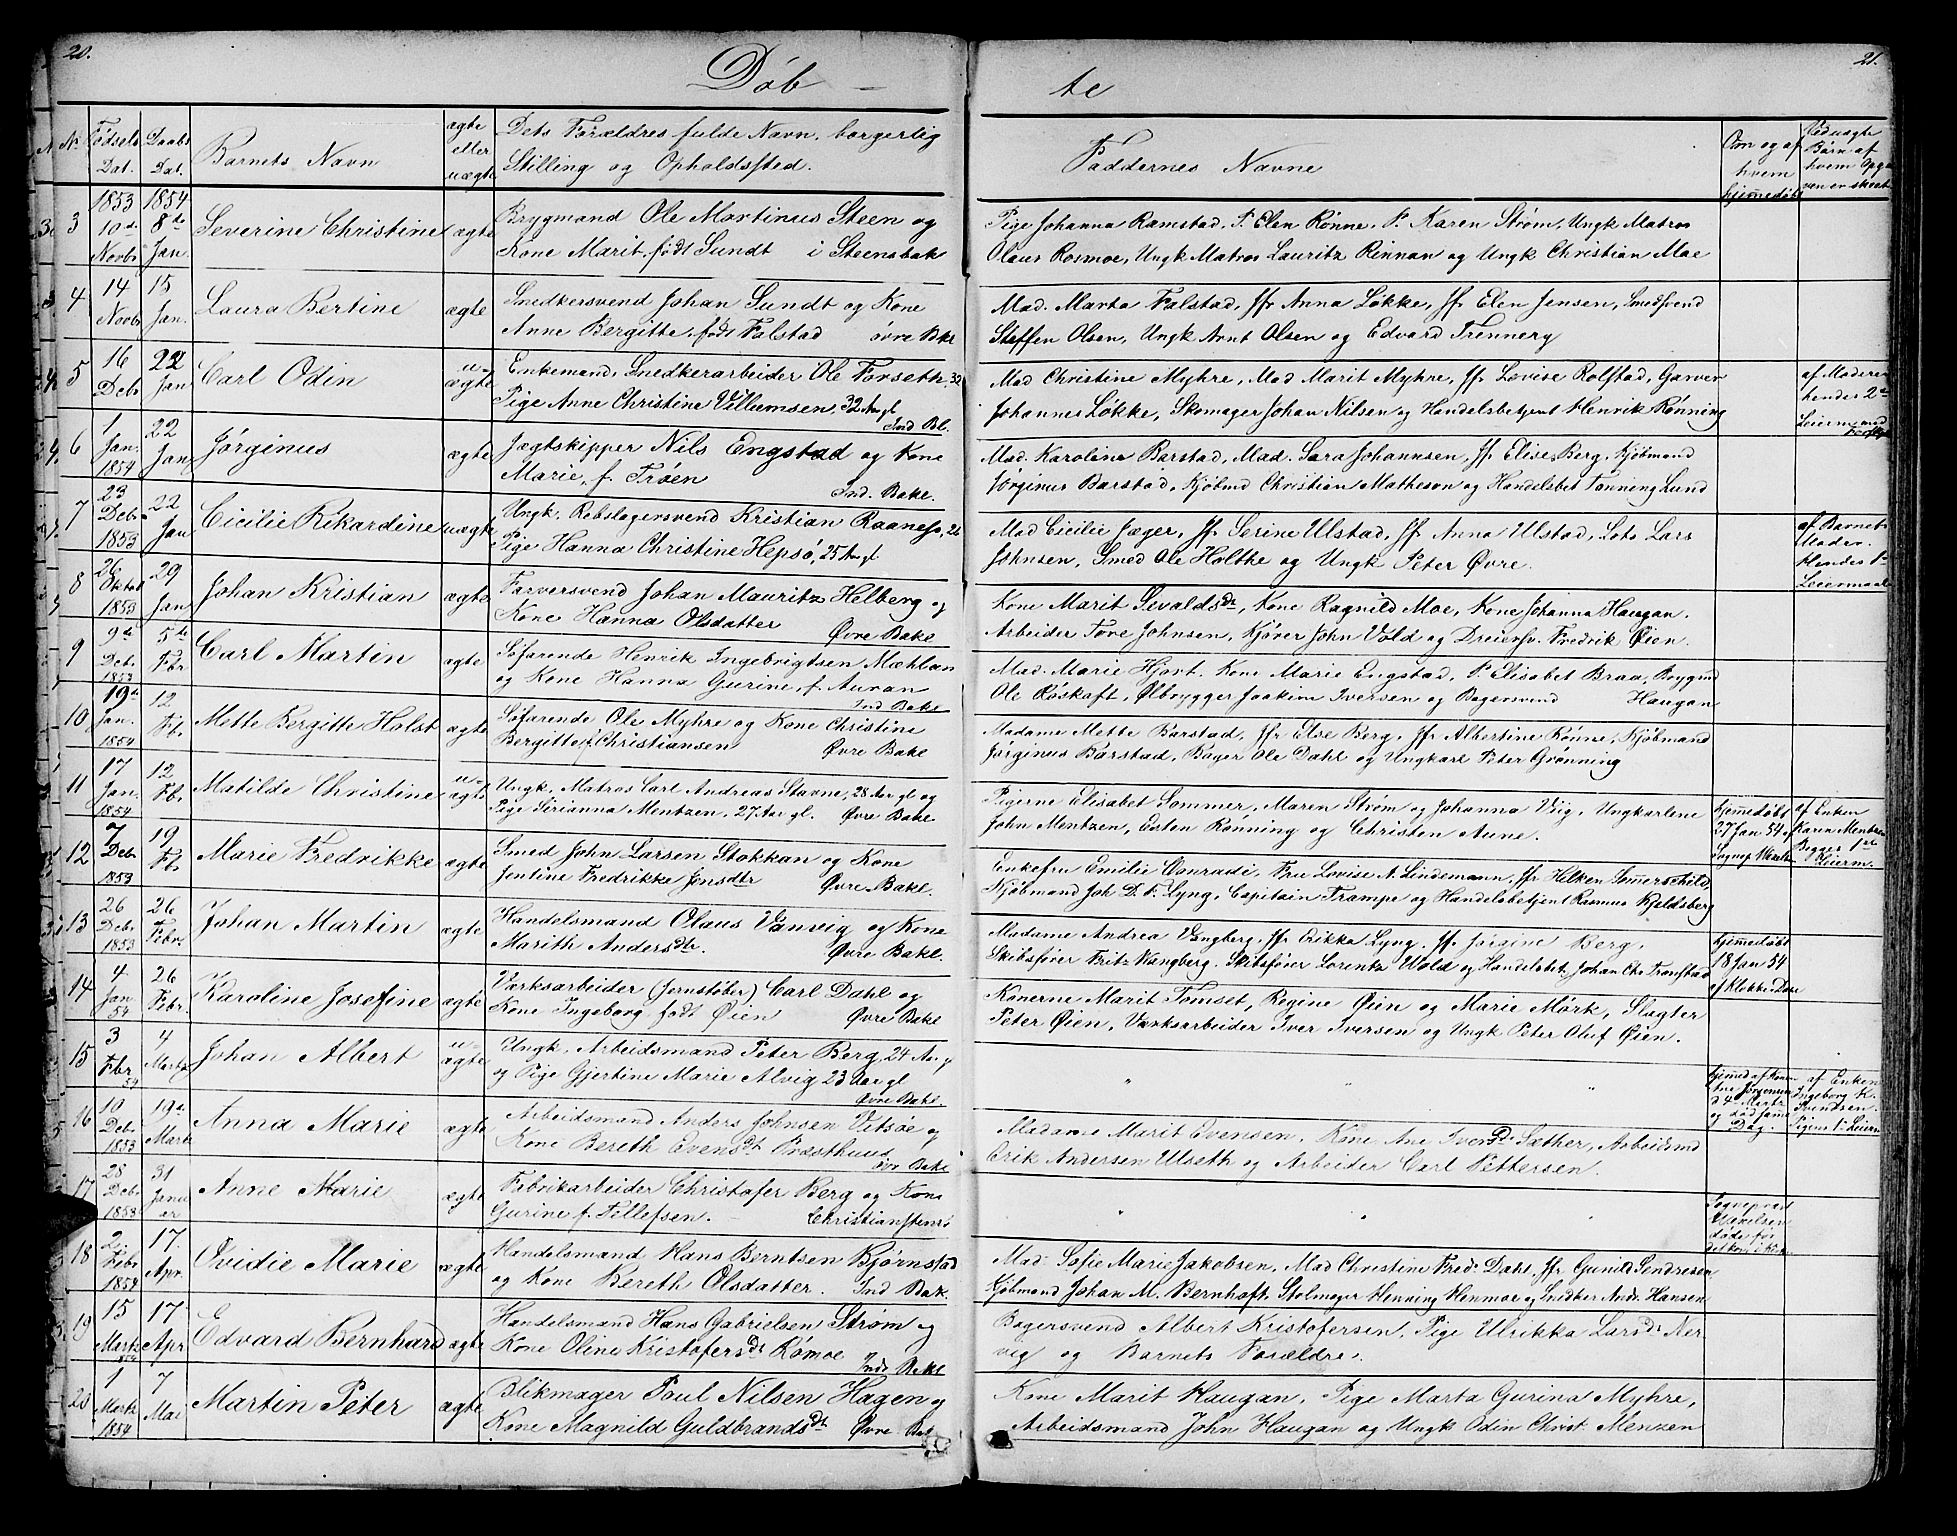 20.
Döb –
No.
Fødsels Dat.
Daabs Dat.
Barnets Navn
ægte eller uægte
Dets Forældres fulde Navn, borgerlig
Stilling og Opholdssted.
3
1853 10de Novbr
1854 8de Jan.
Severine Christine
ægte
Brygmand Ole Martinus Steen og
Kone Marit, født Sundt i Steensbak
4
14 Novbr
15 Jan.
Laura Bertine
ægte
Snedkersvend Johan Sundt og Kone
Anne Bergitte, født Falstad øvre Bakl
5
16 Debr
22 Jan
Carl Odin
u-ægte
Enkemand, Snedkerarbeider Ole Forseth, 32
Pige Anne Christine Villumsen, 32 Aar gl
Ind Bl.
6
1 Jan. 1854
22 Jan
Jørginus
ægte
Jægtskipper Nils Engstad og Kone
Marie, f. Trøen Ind. Bakl.
7
23 Debr 1853
22 Jan
Cicilie Rikardine
uægte
Ungk. Rebslagersvend Kristian Raaness, 26
Pige Hanna Christine Hepsø, 25 Aar gl
8
26 Oktob 1853
29 Jan
Johan Kristian
ægte
Farversvend Johan Mauritz Helberg og
Kone Hanna Olsdatter Øvre Bakl
9
9de Deb. 1853
5te Fbr
Carl Martin
ægte
Søfarende Henrik Ingebrigtsen Mæhlan
og Kone Hanna Gurine, f. Auran
Ind Bakl
10
19de Jan. 1854
12 Fb.
Mette Bergitte Holst
ægte
Søfarende Ole Myhre og Kone Christine
Bergitte f. Christiansen Øvre Bakl
11
17 Jan. 1854
12 Fb.
Matilde Christine
u-ægte
Ungk. Matros Carl Andreas Stavne, 28 Aar gl og
Pige Sirianna Mentzen, 27 Aar gl. Øvre Bakl.
12
7 Deb. 1853
19 Fb.
Marie Fredrikke
ægte
Smed John Larsen Stokkan og Kone
Jentine Fredrikke Jensdtr Øvre Bakl.
13
26 Deb. 1853
26 Febr
Johan Martin
ægte
Handelsmand Olaus Vanvig og Kone
Marith Andersdtr. Øvre Bakl.
14
4 Jan 54
26 Febr.
Karoline Josefine
ægte
Værksarbeider (Jernstøber) Carl Dahl og
Kone Ingeborg født Øien Øvre Bakl
15
3 Fbr 54
4 Marts
Johan Albert
u-ægte
Ungk. Arbeidsmand Peter Berg, 24 Aar gl
og Pige Gjertine Marie Alvig 23 Aar gl
Øvre Bakl.
16
10 Deb. 1853
19de Marts
Anna Marie
ægte
Arbeidsmand Anders Johnsen Vitsøe og
Kone Bereth Evensdt Præsthuus
øvre Bakl
17
28 Deb. 1853
31 Januer
Anne Marie
ægte
Fabrikarbeider Christofer Berg og Kone
Gurine f. Tellefsen. – Christianstens
18
2. Febr 1854
17. Apr.
Ovidie Marie
ægte
Handelsmand Hans Berntsen Bjørnstad
og Kone Bereth Olsdatter. Ind Bak.
19
15 Marts 1854
17 Apr
Edvard Bernhard
ægte
Handelsmand Hans Gabrielsen Strøm og
Kone Oline Kristofersdt Rømoe Indr Bakl
20
1 Marts 1854
7 Mai
Martin Peter
ægte
Blikmager Poul Nilsen Hagen og
Kone Magnild Guldbrandsdt Øvre Bakl
21.
te
Faddernes Navne
Om og af hvem hjemmedøbt
Ved uægte Børn af hvem Opgaven er skeet
Pige Johanna Ramstad, P. Elen Rønne, P. Karen Strøm, Ungk Matros
Olaus Rosmoe, Ungk Matros Lauritz Rinnan og Ungk Christian Moe
Mad. Marta Falstad, Jfr Anna Løkke, Jfr Elen Jensen, Smedsvend
Steffen Olsen, Ungk Arnt Olsen og Edvard Trennery
Mad Christine Myhre, Mad Marit Myhre, Jfr Lovise Rolfstad, Garver
Johannes Løkke, Skomager Johan Nilsen og Handelsbetjent Henrik Rønning
af Moderen hendes 2det Leiermaal
Mad. Karoline Barstad, Mad. Sara Johannsen, Jfr Elise Berg, Kjøbmand
Jørginus Barstad, Kjøbmd Christian Matheson og Handelsbet Tønning Lund
Mad Cicilie Jæger, Jfr Serine Ulstad, Jfr Anna Ulstad, Lots Lars
Johnsen, Smed Ole Holthe og Ungk Peter Øvre.
af Barnets Moder hendes 1ste Leiermaal
Kone Marit Sevaldsdt, Kone Ragnild Moe, Kone Johanna Haugan.
Arbeider Tore Johnsen, Kjører John Vold og Dreiersv. Fredrik Øien.
Mad. Marie Hjort, Kone Marie Engstad, P. Elisabet Braa, Brygmd
Ole Røskaft, Ølbrygger Joakim Iversen og Bagersvend Haugan
Madame Mette Barstad, Jfr Else Berg, Jfr Albertine Rønne, Kjøbmand
Jørginus Barstad, Bager Ole Dahl og Ungkarl Peter Grønning
Pigerne Elisabet Sommer, Maren Strøm og Johanna Viig, Ungkarlene
John Mentzen, Esten Rønning og Christen Aune.
hjemedøbt 27 Jan 54 af
af Enken Karen Mentzen Begges 1ste Leierm.
Enkefru Emilie Conradi, Fru Lovise A. Lindemann, Jfr Helken Sommerschild
Kjøbmand Joh D. F. Lyng, Capitain Trampe og Handelsbetjent Rasmus Kjeldsberg
Madame Andrea Vangberg, Jfr Erikka Lyng, Jfr Jørgine Berg,
Skibsfører Fritz Wangberg, Skibsfører Lorentz Wold og Handelsbet. Johan Chr Tronstad
hjemedøbt 18 Jan 54 af Klokker Dahl
Konerne Marit Tomset, Regine Øien og Marie Mørk, Slagter
Peter Øien, Værksarbeider Iver Iversen og Ungk Peter Oluf Øien.
" " "
hjemed af Jørgensen d 4 Marts og død samme Dag.
af Enken Ingeborg K. Svendsen. Pigens 1ste Leierm
Madame Marit Evensen, Kone Ane Iversdt Sæther, Arbeidsmd
Erik Andersen Ulseth og Arbeider Carl Pettersen.
" "
døde før
Mad. Sofie Marie Jakobsen, Mad Christine Fred. Dahl, Jfr Gunild Sendresen
Kjøbmand Johan M. Bernhoft, Stolmager Henning Henmoe og Snedker Andr. Hansen
Bagersvend Albert Kristofersen, Pige Ulrikka Larsdt Ner-
vig og Barnets Forældre.
Kone Marit Haugan, Pige Marta Gurina Myhre,
Arbeidsmand John Haugan og Ungk Odin Christ. Menzen